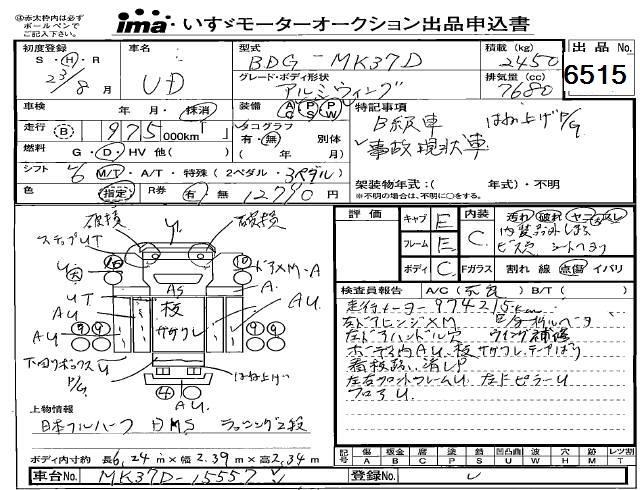 ④赤太枠内は必ず
ボールペンで
ご記入下さい。
ima いすゞモーターオークション出品申込書
初度登録 S・H・R 23/8月
車名 UD
型式 BDG-MK37D
積載(kg) 2450
出品No. 6515
グレード・ボディ形状 アルミウィング
排気量(cc) 7680
車検 年 月・抹消
装備 AC PS PW
特記事項
B級車 はね上げP/G
事故現状車
走行 B 975 000km「 」
タコグラフ 有・無 別体
( 年 月)
燃料 G・D・HV 他( )
シフト 6 M/T・A/T・特殊(2ペダル・3ペダル)
色 指定 R券 有 無 12790円
架装物年式:( 年式)・不明
(※不明の場合は、不明に○をする。)
評価 キャブ E 内装 C 汚れ 破れ ヤニ・ススし
フレーム E
内装品外しあり
ビス穴 シートヘタリ
ボディ C Fガラス 割れ 線 点傷 イバリ
検査員報告 A/C( ) B/T( )
走行メーター974215km
左ドアヒンジXM
左ドアハンドル穴 ウイング補修
ホーデ内AU、板ササクレ、テープはり
看板あい消しP
左右フロントフレームU 左ドピラーU
フロアU
破損 U 破損
ステップUT
ドアXM-A
AS
A
UT
板
ササクレ
AU
AU
AU
下回りボックスU
P/G
はね上げ
AU
上物情報
日本フルハーフ HMS ラッシング2段
ボディ内寸約 長6,24m×幅2.39m×高2,34m
記号 傷 A 板金 B 腐 C 塗 P 錆 S 凹凸曲 U 波 W 穴 H 跡 M 鉄板 T レツ割 X
車台No. MK37D-15557
登録No.